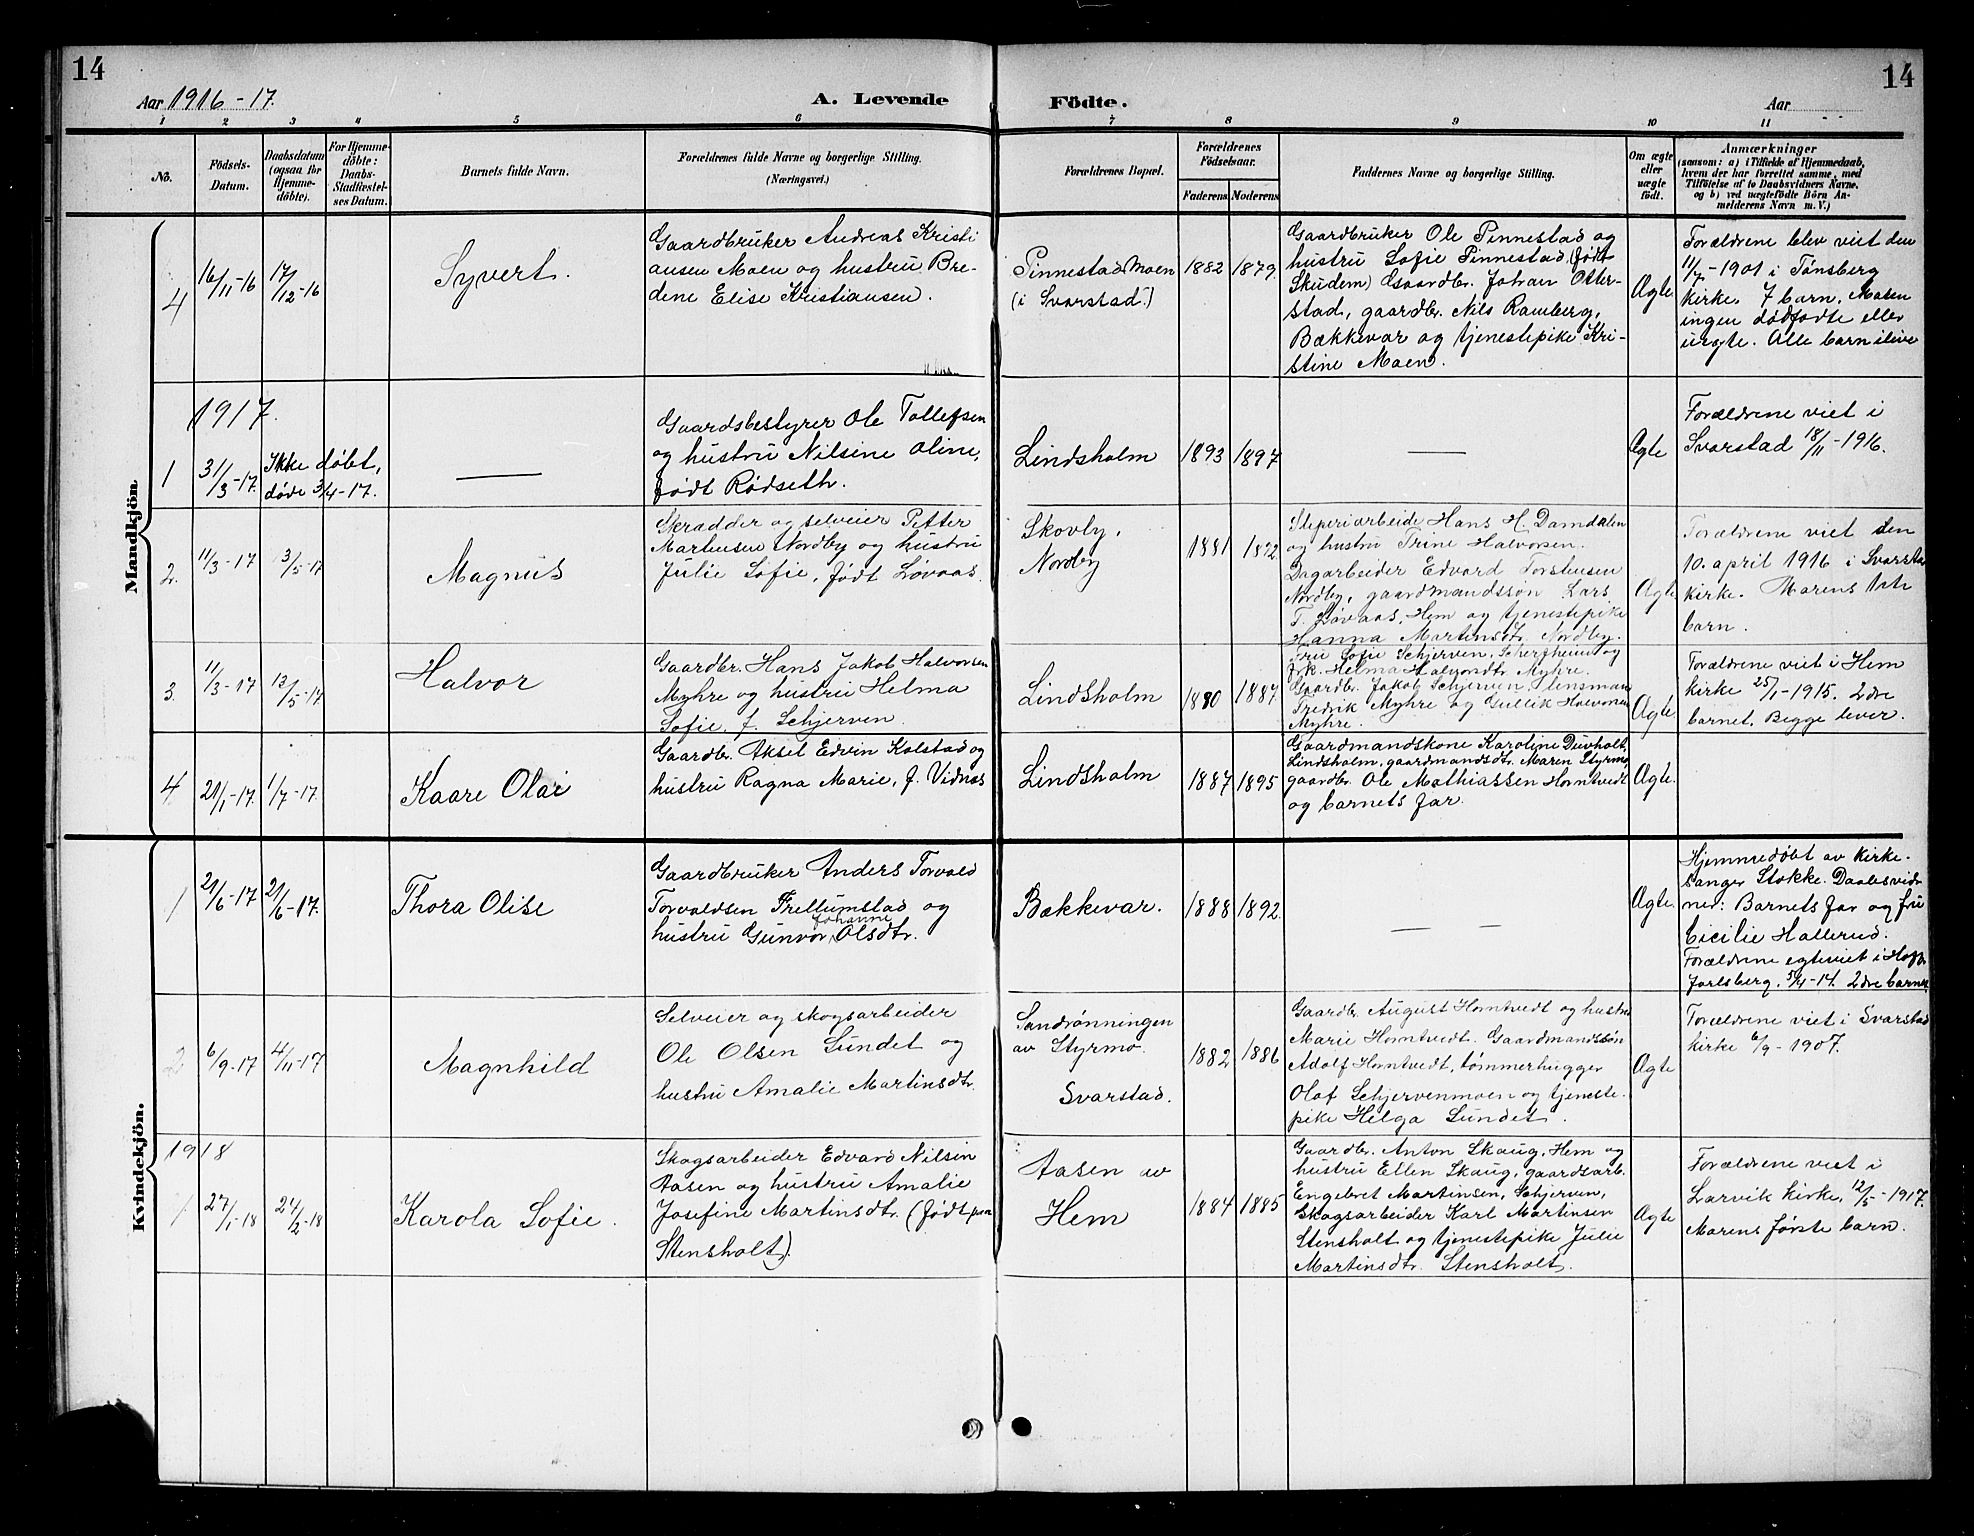 14
14
Aar 1916-17.
A. Levende
Födte.
Aar
1 2 3 4 5 6 7 8 9 10 11
No.
Födsels-
Datum.
Daabsdatum
(ogsaa for
Hjemme-
döbte).
For Hjemme-
döbte:
Daabs-
Stadfæstel-
ses Datum.
Barnets fulde Navn.
Forældrenes fulde Navne og borgerlige Stilling.
(Næringsvei.)
Forældrenes Bopæl.
Forældrenes
Födselsaar.
Faderens
Moderens
Faddernes Navne og borgerlige Stilling.
Om ægte
eller
uægte
födt.
Anmærkninger
(saasom: a) i Tilfælde af Hjemmedaab,
hvem der har forrettet samme, med
Tilföielse af to Daabsvidners Navne,
og b) ved uægtefödte Börn An-
melderens Navn m. V.)
Mandkjön
4
16/11-16
17/12-16
Syvert.
Gaardbruker Andreas Kristi
ansen Moen og hustru Bre-
dene Elise Kristiansen.
Pinnestad Moen
(i Svarstad)
1882
1879
Gaardbruker Ole Pinnestad og
hustru Sofie Pinnestad (født
Skudem) Gaardbr. Johan Otter-
stad, gaardbr. Nils Ramberg,
Bækkevar og tjenestepike Kri-
stine Moen.
Ægte
Forældrene blev viet den
11/7-1901 i Tønsberg
kirke. 7 barn. Moren
ingen dødfødte eller
uegte. Alle barn ilive
1917.
1
31/3-17.
Ikke døbt,
døde 3/4-17.
—
Gaardsbestyrer Ole Tollefsen
og hustru Nilsine Oline,
født Rødseth.
Lindsholm
1893
1897
—
Ægte
Forældrene viet i
Svarstad 18/11-1916.
2.
11/3-17
13/5-17
Magnus
Skrædder og selveier Petter
Martinsen Nordby og hustru
Julie Sofie, født Løvaas.
Skovly,
Nordby
1881
1822
Sliperiarbeide Hans H. Damdalen
og hustru Trine Halvorsen.
Dagarbeider Edvard Torstensen
Nordby, gaardmandssøn Lars
T. Løvaas, Hem og tjenestepike
Hanna Martinsdtr. Nordby.
Ægte
Forældrene viet den
10. april 1916 i Svarstad
kirke. Morens 1ste
barn.
3.
11/3-17
13/5-17
Halvor
Gaardbr. Hans Jakob Halvorsen
Myhre og hustru Helma
Sofie, f. Schjerven.
Lindsholm
1880
1887
Fru Sofie Schjerven, og
frk. Helma Halvorsdtr Myhre.
Gaardbr. Jakob Schjerven, lensmand
Fredrik Myhre og Gullik Halvorsen
Myhre.
Ægte
Forældrene viet i Hem
kirke 25/1-1915. 2dre
barnet. Begge lever.
4.
21/1-17.
1/7-17.
Kaare Olai
Gaardbr. Aksel Edvin Kolstad og
hustru Ragna Marie, f. Vidnes
Lindsholm
1887
1895
Gaardmandskone Karoline Duvholt,
Lindsholm, gaardmandsdtr. Maren Styrmo,
gaardbr. Ole Mathiassen Horntvedt
og barnets far.
Ægte.
Kvindekjön.
1
21/6-17
21/6-17.
Thora Olise
Gaardbruker Anders Torvald
Torvaldsen Frellumstad og
hustru Gunvor Johanne Olsdtr.
Bækkevar.
1888
1892.
— —
Ægte.
Hjemmedøbt av kirke-
sanger Stokke. Daabsvid-
ner: Barnets far og fru
Cicilie Hallerud.
Forældrene egteviet i
Jarlsberg, 5/4-14. 2dre barnet
2
6/9-17
4/11-17
Magnhild
Selveier og skogsarbeider
Ole Olsen Sundet og
hustru Amalie Martinsdtr.
Sandrønningen
av Styrmo.
Svarstad.
1882
1886
Gaardbr. August Horntvedt og hustru
Marie Horntvedt. Gaardmandssøn
Adolf Horntvedt, tømmerhugger
Olaf Schjervenmoen og tjeneste-
pike Helga Sundet.
Ægte
Forældrene viet i Svarstad
kirke 6/9-1907.
1918
1
27/1-18
24/2-18
Karola Sofie.
Skogsarbeider Edvard Nilsin
Aasen og hustru Amalie
Josefine Martinsdtr. (født paa
Stensholt).
Aasen av
Hem
1884
1885
Gaardbr. Anton Skaug, Hem og
hustru Ellen Skaug, gaardsarb.
Engebret Martinsen, Schjerven,
Skogsarbeider Karl Martinsen
Stensholt og tjenestepike Julie
Martinsdtr. Stensholt.
Ægte
Forældrene viet i
Larvik kirke, 12/5-1917.
Morens første barn.